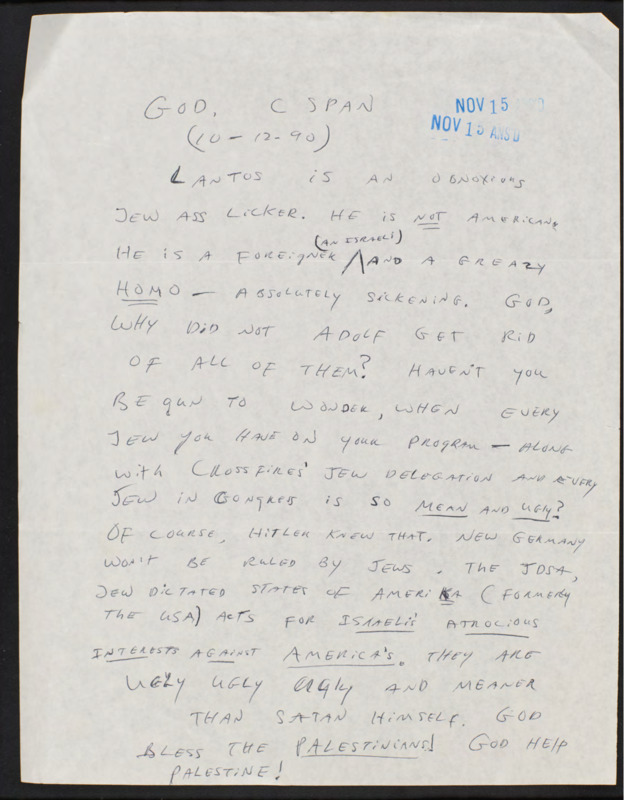 GOD, C SPAN
NOV 15
NOV 15 ANS'D
(10-12-90)
LANTOS IS AN OBNOXIOUS
JEW ASS LICKER. HE IS NOT AMERICAN,
HE IS A FOREIGNER (AN ISRAELI) AND A GREAZY
HOMO — ABSOLUTELY SICKENING. GOD,
WHY DID NOT ADOLF GET RID
OF ALL OF THEM? HAVEN'T YOU
BEGUN TO WONDER, WHEN EVERY
JEW YOU HAVE ON YOUR PROGRAM — ALONG
WITH CROSSFIRES' JEW DELEGATION AND EVERY
JEW IN CONGRESS IS SO MEAN AND UGLY?
OF COURSE, HITLER KNEW THAT. NEW GERMANY
WON'T BE RULED BY JEWS. THE JDSA,
JEW DICTATED STATES OF AMERIKA (FORMERLY
THE USA) ACTS FOR ISRAELI'S ATROCIOUS
INTERESTS AGAINST AMERICA'S. THEY ARE
UGLY UGLY UGLY AND MEANER
THAN SATAN HIMSELF. GOD
BLESS THE PALESTINIANS! GOD HELP
PALESTINE!